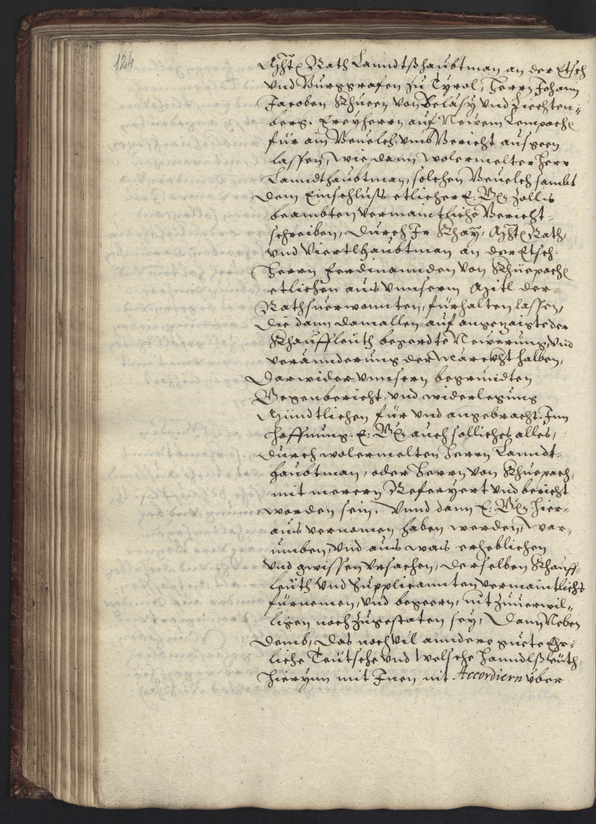 124
Rath Lanndtßhaubtman an der Etsch
vnd Burggrafen zu Tyrol, Herrn Johann
Jacoben Khuen von Belasy vnd Liechten-
berg, Freyherrn auf Neuem Lempach
für ain Beuelch vmb Bericht ausgeen
lassen, wie dann wolermelter Herr
Lanndthaubtman, solchen Beuelch sambt
dem Einschluß etlicher E: Gn Zolls
beambten vermaintliche Bericht-
schreiben, durch Ir Khay: Rath
vnd Viertlhaubtman an der Etsch
Herrn Ferdinannden von Khüepach
etlichen aus vnnserm Mitl der
Rathsuerwonnten, fürhalten lassen,
die dann damallen auf angeregte der
Khauffleuth begerdte Neuerung vnd
veränderung der Märckht halben,
darwider vnnsern begründten
Gegenbericht vnd widerlegung
Mündtlichen für vnd angebracht. Inn
hoffnung E: Gn auch sollches alles,
durch wolermelten Herrn Lanndt-
haubtman, oder Herrn von Khüepach,
mit merern Referyert vnd bericht
worden sein. Vnnd dann E: Gn hier-
aus vernomen haben werden, war-
umben, vnd aus was erheblichen
vnd gwissen vrsachen, derselben Khauff-
leuth vnd Supplicannten vermaintlichs
fürnemen, vnd begeern, nit zuuerwil-
ligen noch zugestaten sey, dann Neben
demb, das noch vil anndere guete Ehr-
liche Teutsche vnd Welsche Hanndlßleuth,
hierynn mit Inen nit Accordiern über